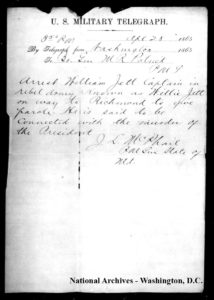 U. S. MILITARY TELEGRAPH.
Apl 23 1865
By Telegraph from Washington 1865
To
Arrest William Jett Captain in
rebel army known as Willie Jett
on way to Richmond to give
parole. He is said to be
connected with the murder of
the President
J L McPhail
State of
Md.
National Archives - Washington, D.C.